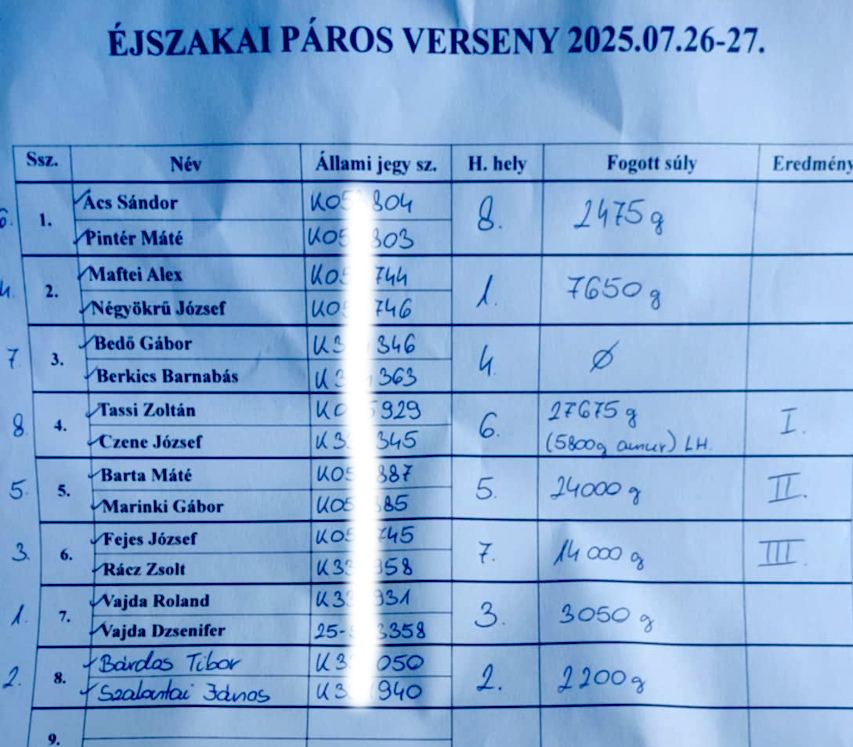 ÉJSZAKAI PÁROS VERSENY 2025.07.26-27.
Ssz. Név Állami jegy sz. H. hely Fogott súly Eredmény
6. 1. Ács Sándor K05 804 8. 2475 g
Pintér Máté K05 803
4. 2. Maftei Alex K05 744 1. 7650 g
Négyökrű József K05 746
7 3. Bedő Gábor K3 346 4. Ø
Berkics Barnabás K3 363
8. 4. Tassi Zoltán K0 929 6. 27675 g I.
Czene József K3 345 (5800g amur) LH.
5. 5. Barta Máté K05 887 5. 24000 g II.
Marinki Gábor K05 885
3. 6. Fejes József K05 745 7. 14000 g III.
Rácz Zsolt K33 958
1. 7. Vajda Roland K33 931 3. 3050 g
Vajda Dzsenifer 25- 3358
2. 8. Bárdos Tibor K3 050 2. 2200 g
Szalantai János K3 940
9.